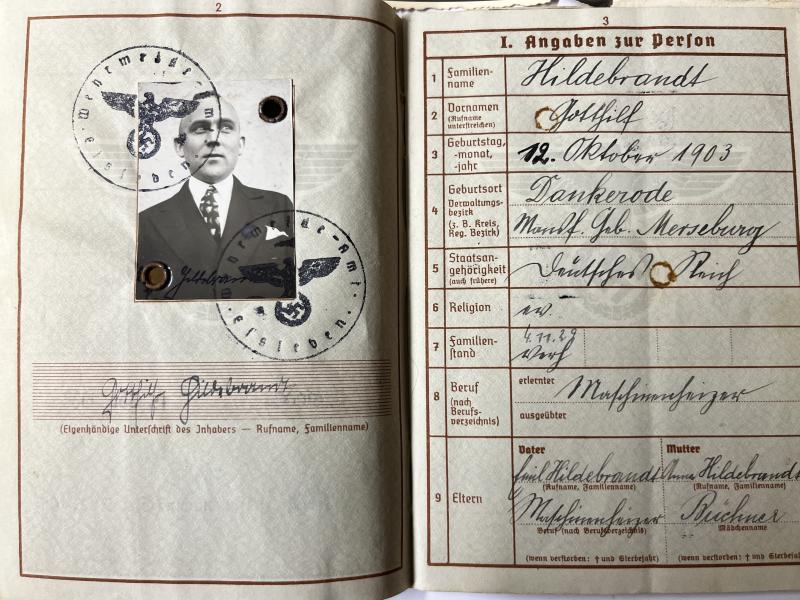 2
Wehrmelde-Amt
Eisleben.
Wehrmelde-Amt.
Eisleben.
Gotthilf Hildebrandt
(Eigenhändige Unterschrift des Inhabers — Rufname, Familienname)
3
I. Angaben zur Person
1 Familien-
name
Hildebrandt
2 Vornamen
(Rufname
unterstreichen)
Gotthilf
3 Geburtstag,
-monat,
-jahr
12. Oktober 1903
4 Geburtsort
Verwaltungs-
bezirk
(z. B. Kreis,
Reg. Bezirk)
Dankerode
Mansf. Geb. Merseburg
5 Staatsan-
gehörigkeit
(auch frühere)
Deutsches Reich
6 Religion
ev.
7 Familien-
stand
4.11.29
verh
8 Beruf
(nach
Berufs-
verzeichnis)
erlernter
Maschinenheizer
ausgeübter
9 Eltern
Vater
Mutter
Emil Hildebrandt
Anna Hildebrandt
(Rufname, Familienname)
(Rufname, Familienname)
Maschinenheizer
Büchner
Beruf (nach Berufsverzeichnis)
Mädchenname
(wenn verstorben: † und Sterbejahr)
(wenn verstorben: † und Sterbejahr)